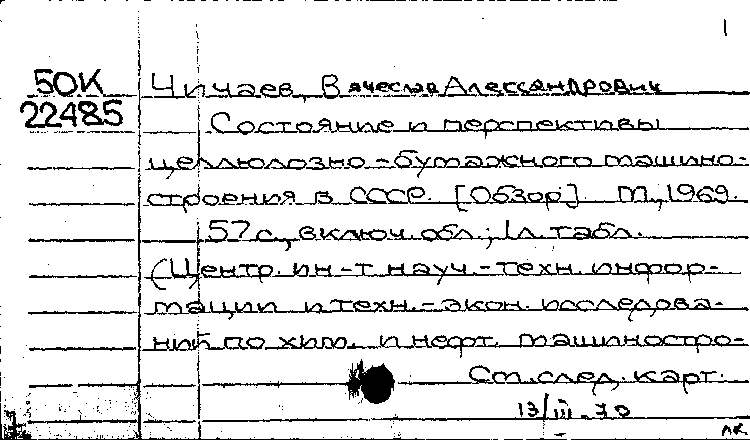 1
50К Чичаев, Вячеслав Александрович
22485 Состояние и перспективы
целлюлозно-бумажного машино-
строения в СССР. [Обзор]. М., 1969.
57 с., включ. обл.; 1 л. табл.
(Центр. ин-т науч.-техн. инфор-
мации и техн.-экон. исследова-
ний по хим. и нефт. машиностро-
См. след. карт.
13/III-70
лк.